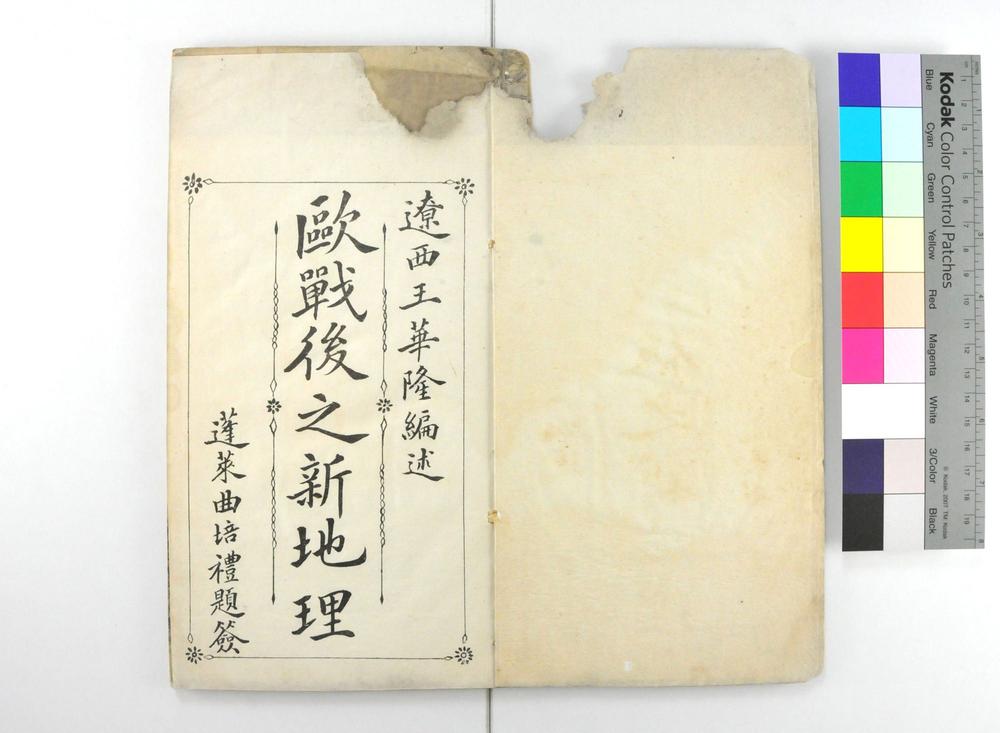 遼西王華隆編述
歐戰後之新地理
蓬萊曲培禮題簽
Kodak Color Control Patches
Blue
Cyan
Green
Yellow
Red
Magenta
White
3/Color
Black
© Kodak, 2007 TM: Kodak
cm 1 2 3 4 5 6 7 8 9 10 11 12 13 14 15 16 17 18 19